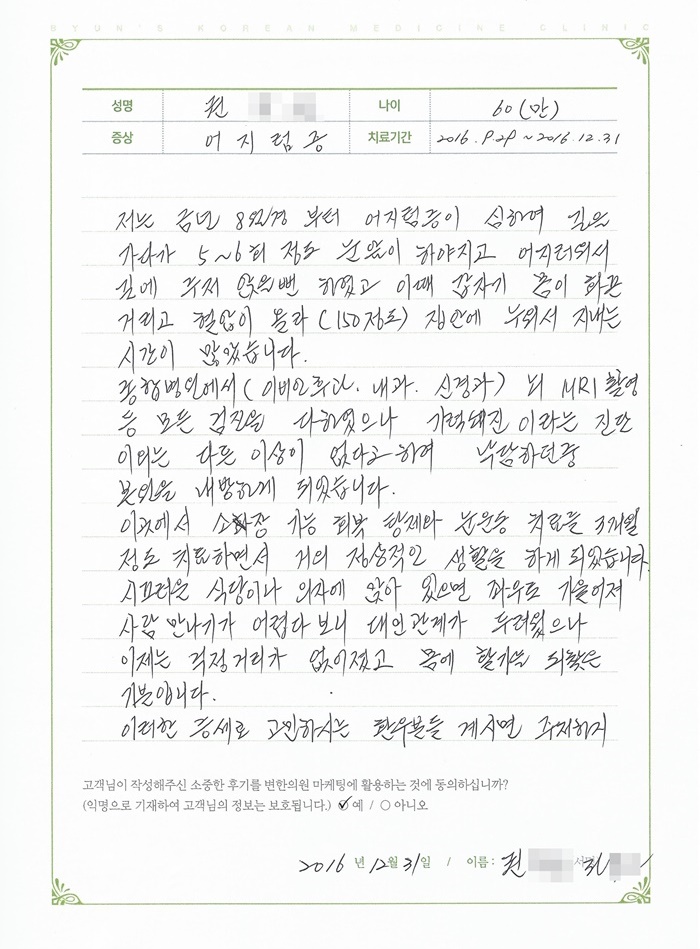 BYUN'S KOREAN MEDICINE CLINIC
성명 권 나이 60 (만)
증상 어지럼증 치료기간 2016. 9. 29 ~ 2016. 12. 31
저는 금년 8월경 부터 어지럼증이 심하여 길을
가다가 5~6회 정도 눈앞이 하야지고 어지러워서
길에 주저 앉을뻔 하였고 이때 갑자기 몸이 화끈
거리고 혈압이 올라 (150정도) 집안에 누워서 지내는
시간이 많았습니다.
종합병원에서 (이비인후과. 내과. 신경과) 뇌 MRI 촬영
등 모든 검진을 다하였으나 기력쇄진 이라는 진단
이외는 다른 이상이 없다고 하여 낙담하던중
본원을 내방하게 되었습니다.
이곳에서 소화장 기능 회복 탕제와 눈운동 치료를 3개월
정도 치료하면서 거의 정상적인 생활을 하게 되었습니다.
시끄러운 식당이나 의자에 앉아 있으면 좌우로 기울어져
사람 만나기가 어렵다 보니 대인관계가 두려웠으나
이제는 걱정거리가 없어졌고 몸에 활기를 되찾은
기분입니다.
이러한 증세로 고민하시는 환우분들 계시면 주저하지
고객님이 작성해주신 소중한 후기를 변한의원 마케팅에 활용하는 것에 동의하십니까?
(익명으로 기재하여 고객님의 정보는 보호됩니다.) ✓예 / ○ 아니오
2016 년 12월 31일 / 이름 : 권